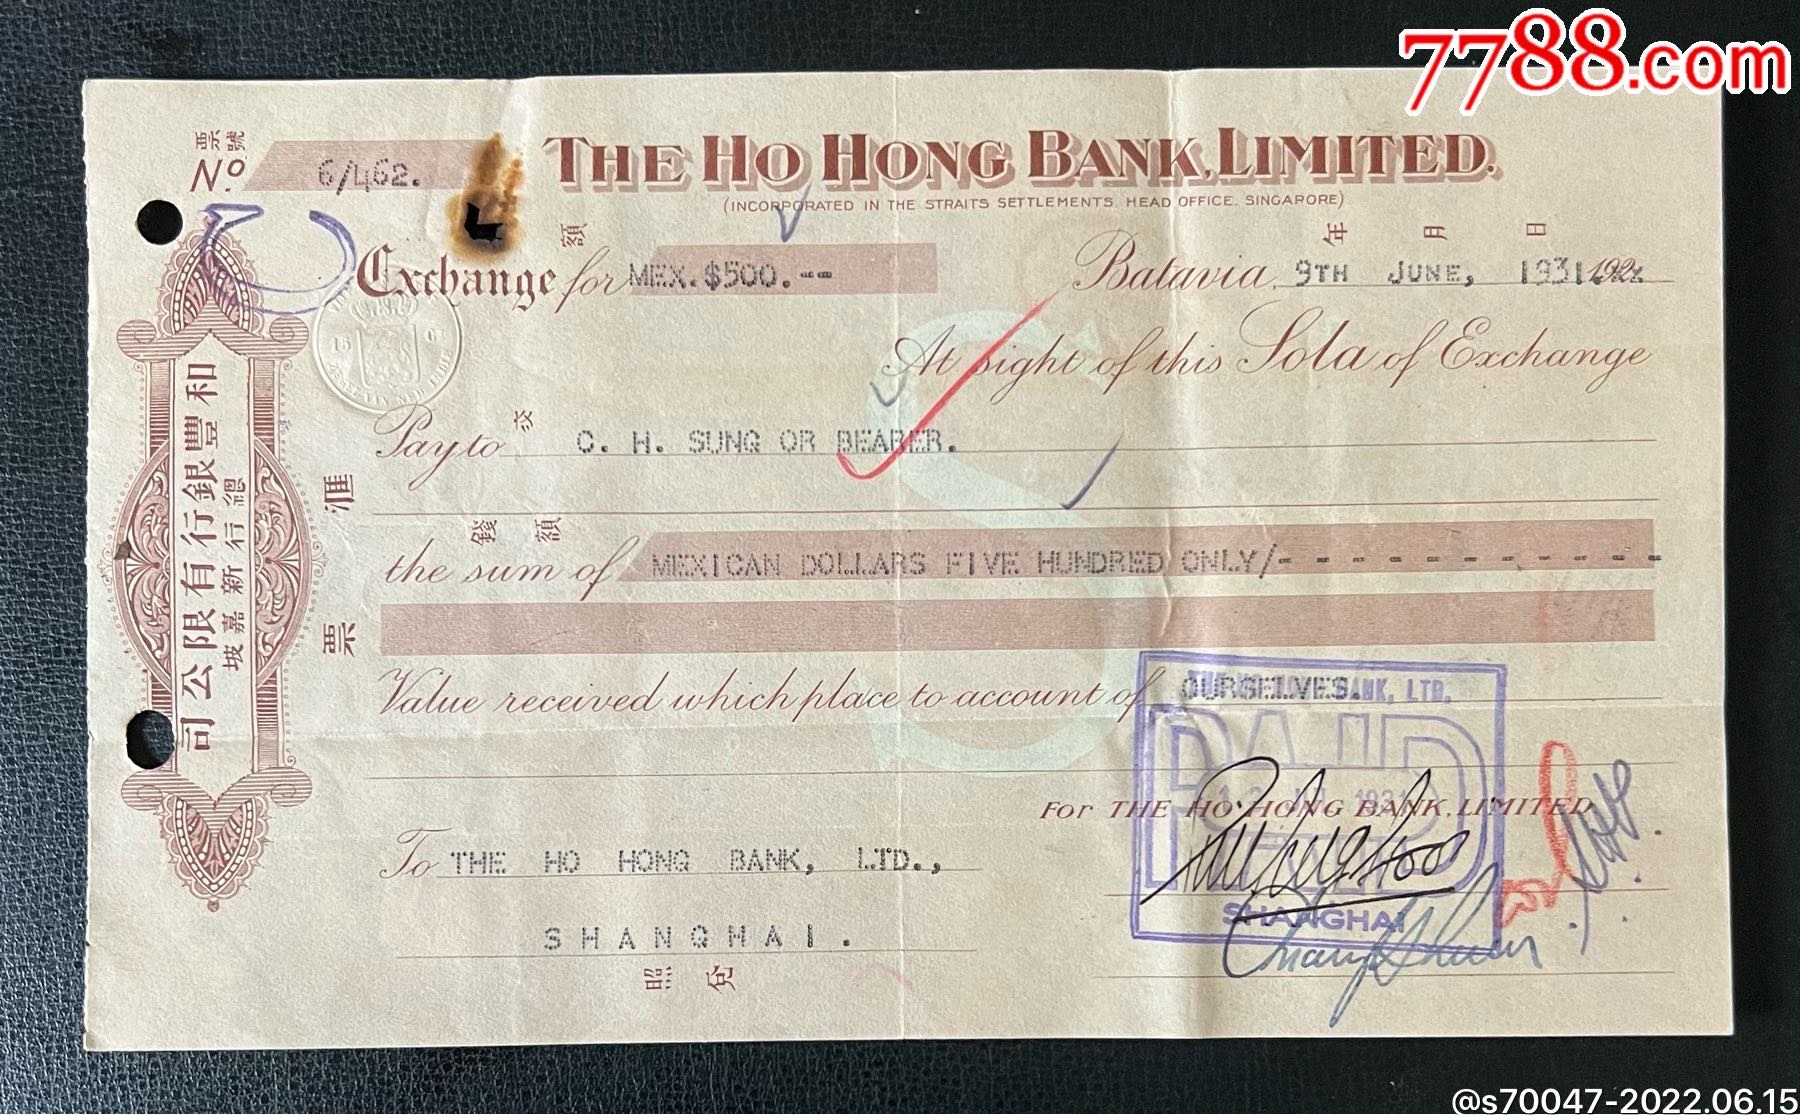 7788.com
票號
No. 6/462.
THE HO HONG BANK, LIMITED.
(INCORPORATED IN THE STRAITS SETTLEMENTS. HEAD OFFICE. SINGAPORE)
額
年 月 日
Exchange for MEX.$500.--
Batavia, 9TH JUNE, 1931. 192
At sight of this Sola of Exchange
交
Pay to C. H. SUNG OR BEARER.
錢 額
the sum of MEXICAN DOLLARS FIVE HUNDRED ONLY/- - - - - - - - - - -
Value received which place to account of OURSELVES.
BANK, LTD.
PAID
1931
SHANGHAI
For THE HO HONG BANK, LIMITED
To THE HO HONG BANK, LTD.,
SHANGHAI.
照 兌
匯票
和豐銀行有限公司
總行新嘉坡
15
@s70047-2022.06.15